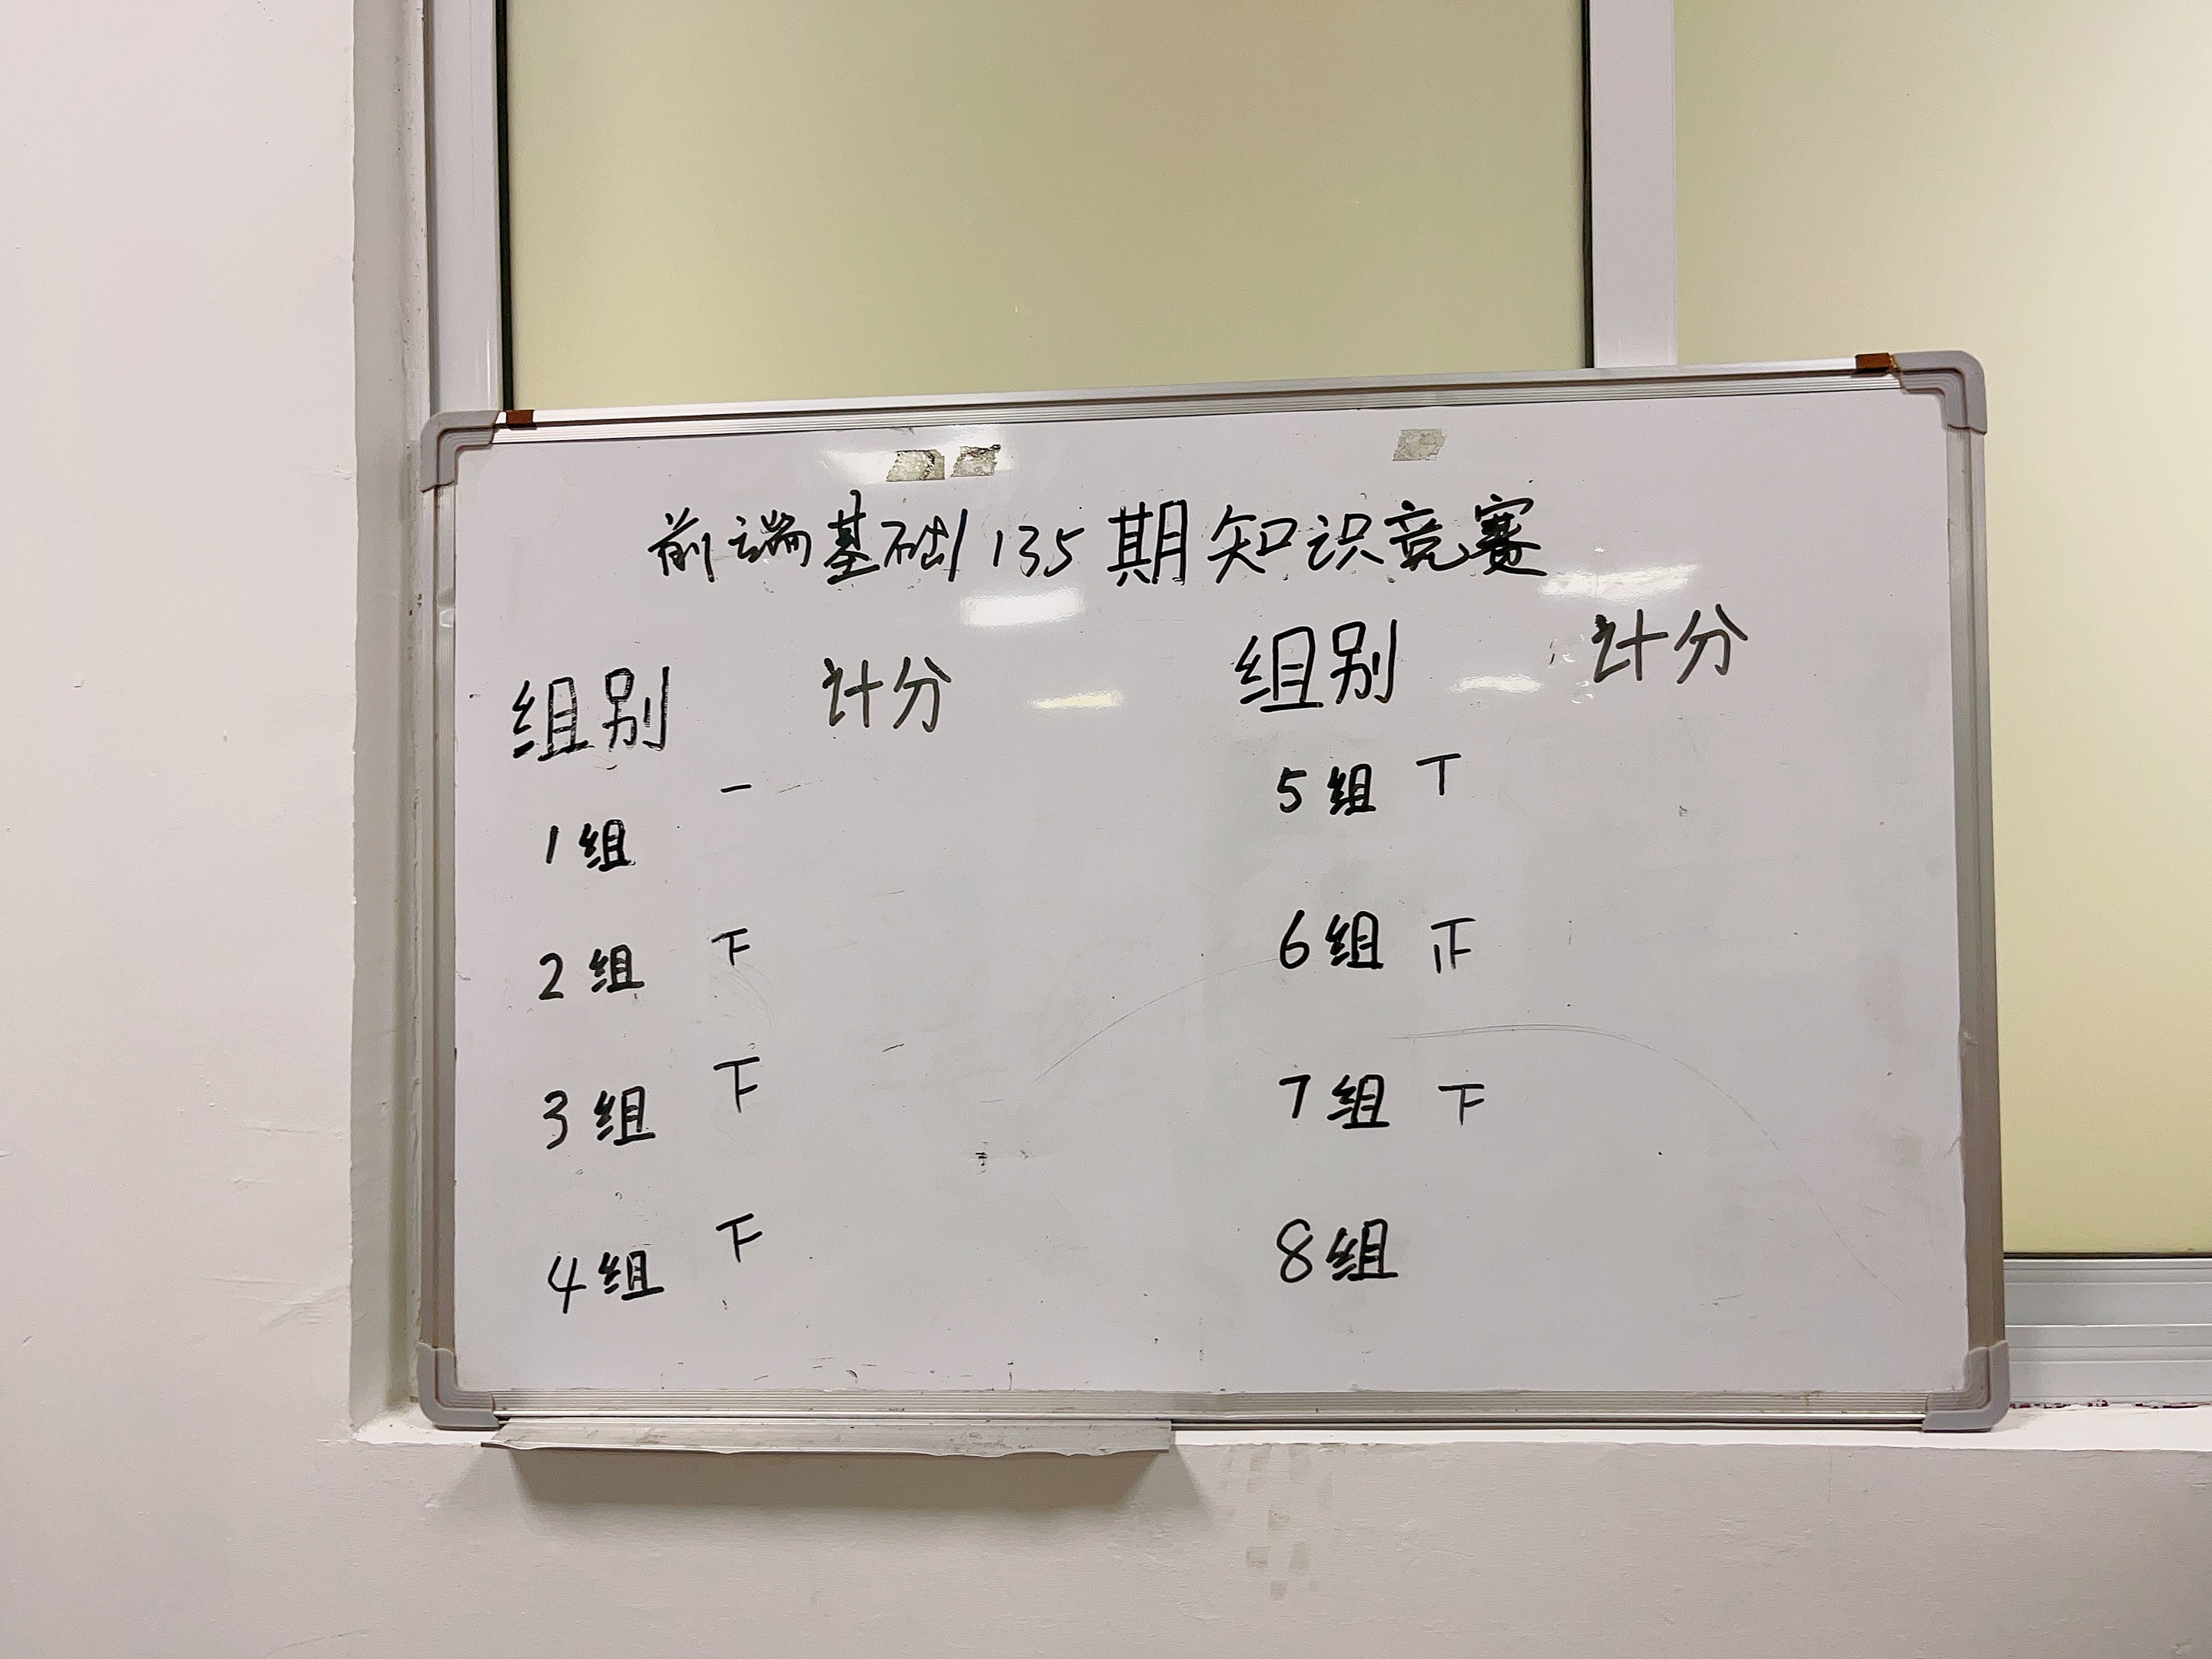 前端基础135期知识竞赛
组别 计分
1组 一
2组 下
3组 下
4组 下
组别 计分
5组 丅
6组
7组 下
8组